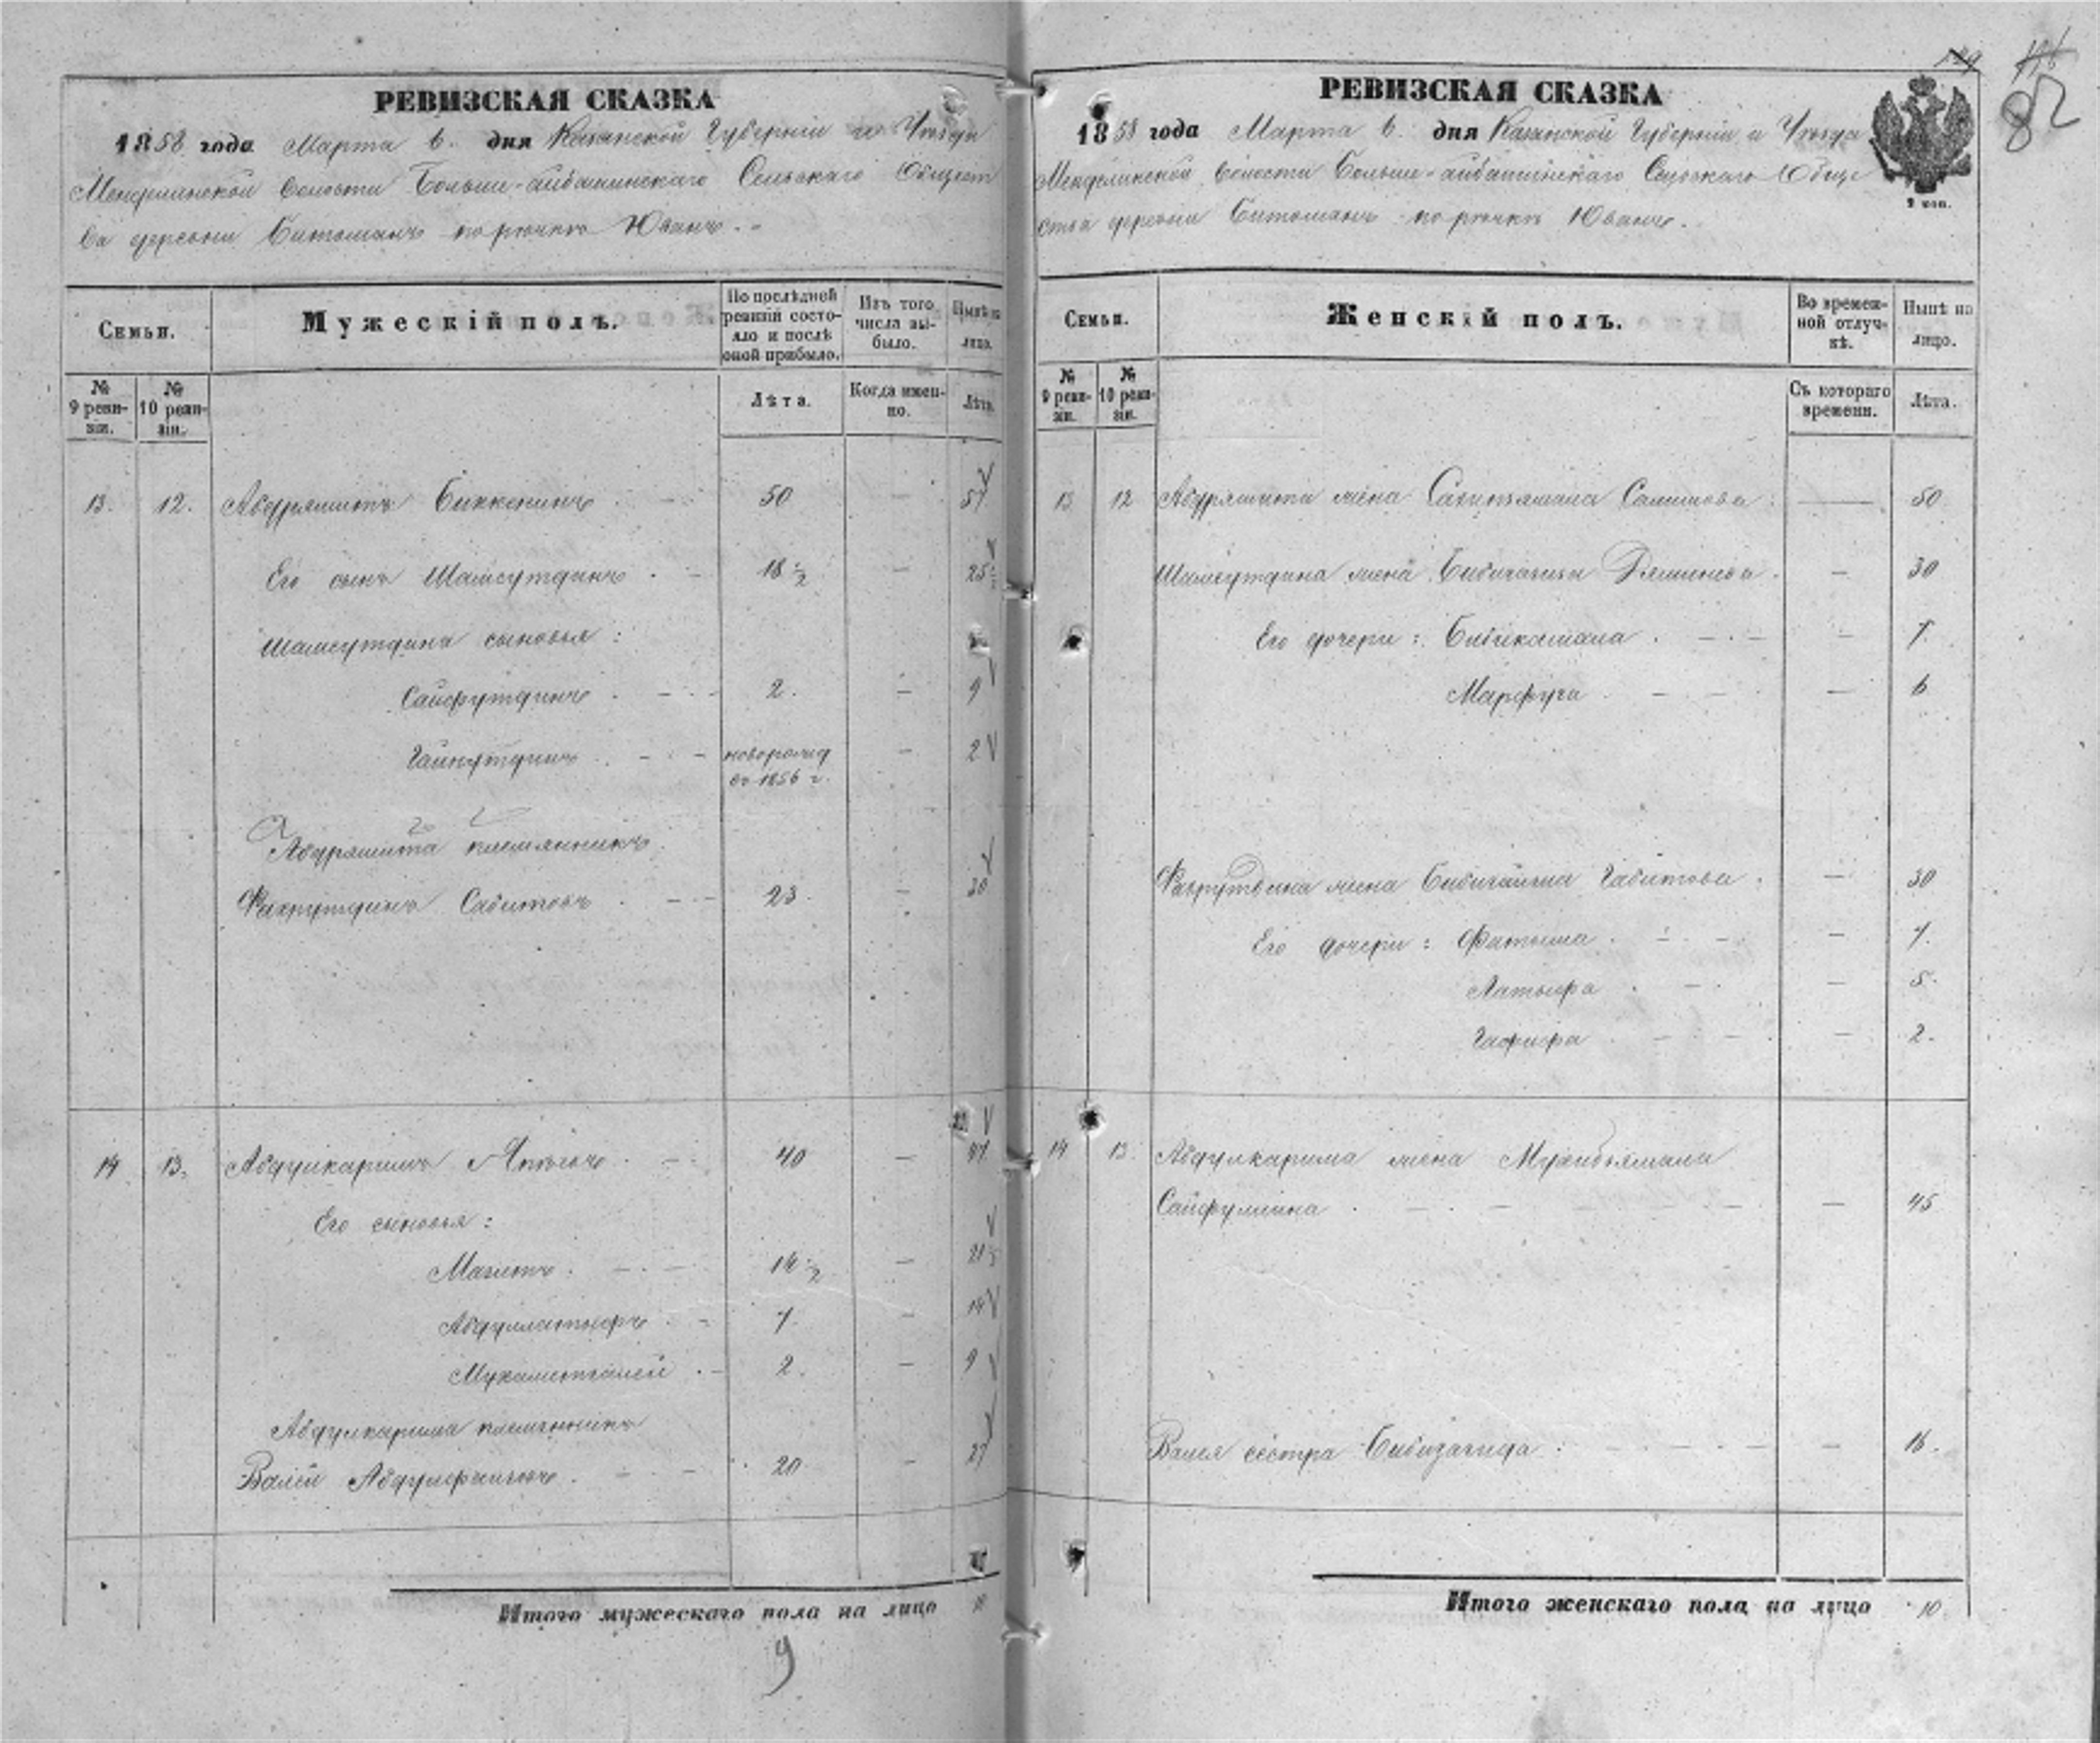 РЕВИЗСКАЯ СКАЗКА
1858 года Марта 6. дня Казанской Губерніи и Уѣзда
волости Больше-айбашинскаго Сельскаго Общест
ва деревни Битаманъ по рѣчкѣ
Семьи.
Мужескій полъ.
По послѣдней ревизіи состояло и послѣ оной прибыло.
Изъ того числа выбыло.
Нынѣ на лицо.
№ 9 ревизіи.
№ 10 ревизіи.
Лѣта.
Когда именно.
Лѣта.
13. 12. Абдряшитъ Биккенинъ 50 — 57
Его сынъ Шамсутдинъ 18 1/2 — 25 1/2
Шамсутдина сыновья:
Сайфутдинъ 2. — 9
Гайнутдинъ новорожд — 2
въ 1856 г.
Абдряшита племянникъ
Фахрутдинъ Сабитовъ 23. — 30
14 13. Абдулкаримъ 40 — 47
Его сыновья:
14 1/2 — 21 1/2
Абдуллатыфъ 7. — 14
2. — 9
Абдулкарима племянникъ
Валей 20 — 27
Итого мужескаго пола на лицо
9
129
82
РЕВИЗСКАЯ СКАЗКА
1858 года Марта 6. дня Казанской Губерніи и Уѣзда
волости Больше-айбашинскаго Сельскаго Обще
ства деревни Битаманъ по рѣчкѣ
2 коп.
Семьи.
Женскій полъ.
Во временной отлучкѣ.
Нынѣ на лицо.
№ 9 ревизіи.
№ 10 ревизіи.
Съ котораго времени.
Лѣта.
13 12 Абдряшита жена Салимова — 50
Шамсутдина жена — 30
Его дочери: Бибикамала — 7
Марфуга — 6
Фахрутдина жена Габитова — 30
Его дочери: Фатыма — 7.
Латыфа — 5.
Гафифа — 2.
14 13. Абдулкарима жена
Сайфуллина — 45
Валея сестра Бибизагида — 16.
Итого женскаго пола на лицо 10